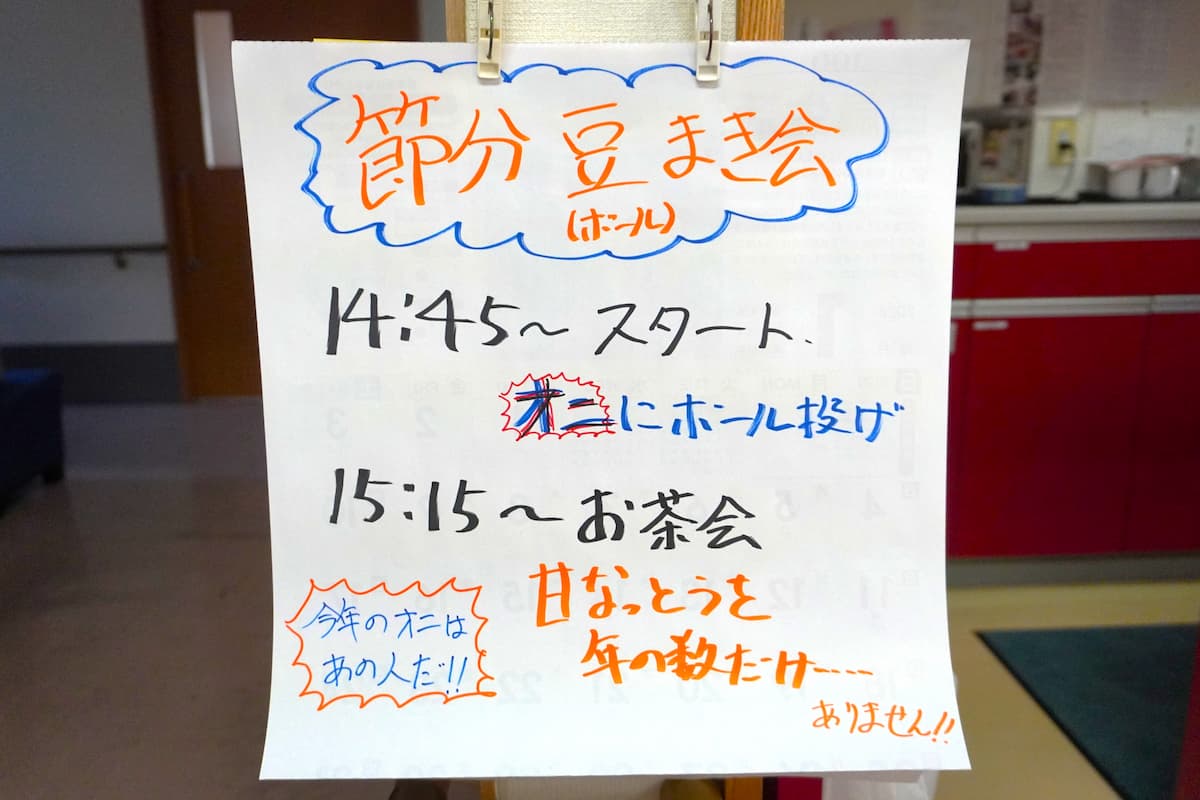 節分 豆まき会
(ボール)
14:45~ スタート.
オニにボール投げ
15:15~お茶会
甘なっとうを
年の数だけ----
ありません!!
今年のオニは
あの人だ!!